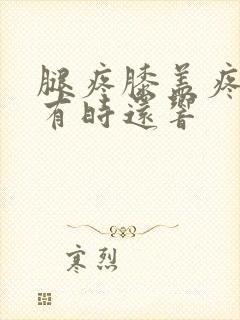 腿疼膝盖疼
有时还响
寒烈